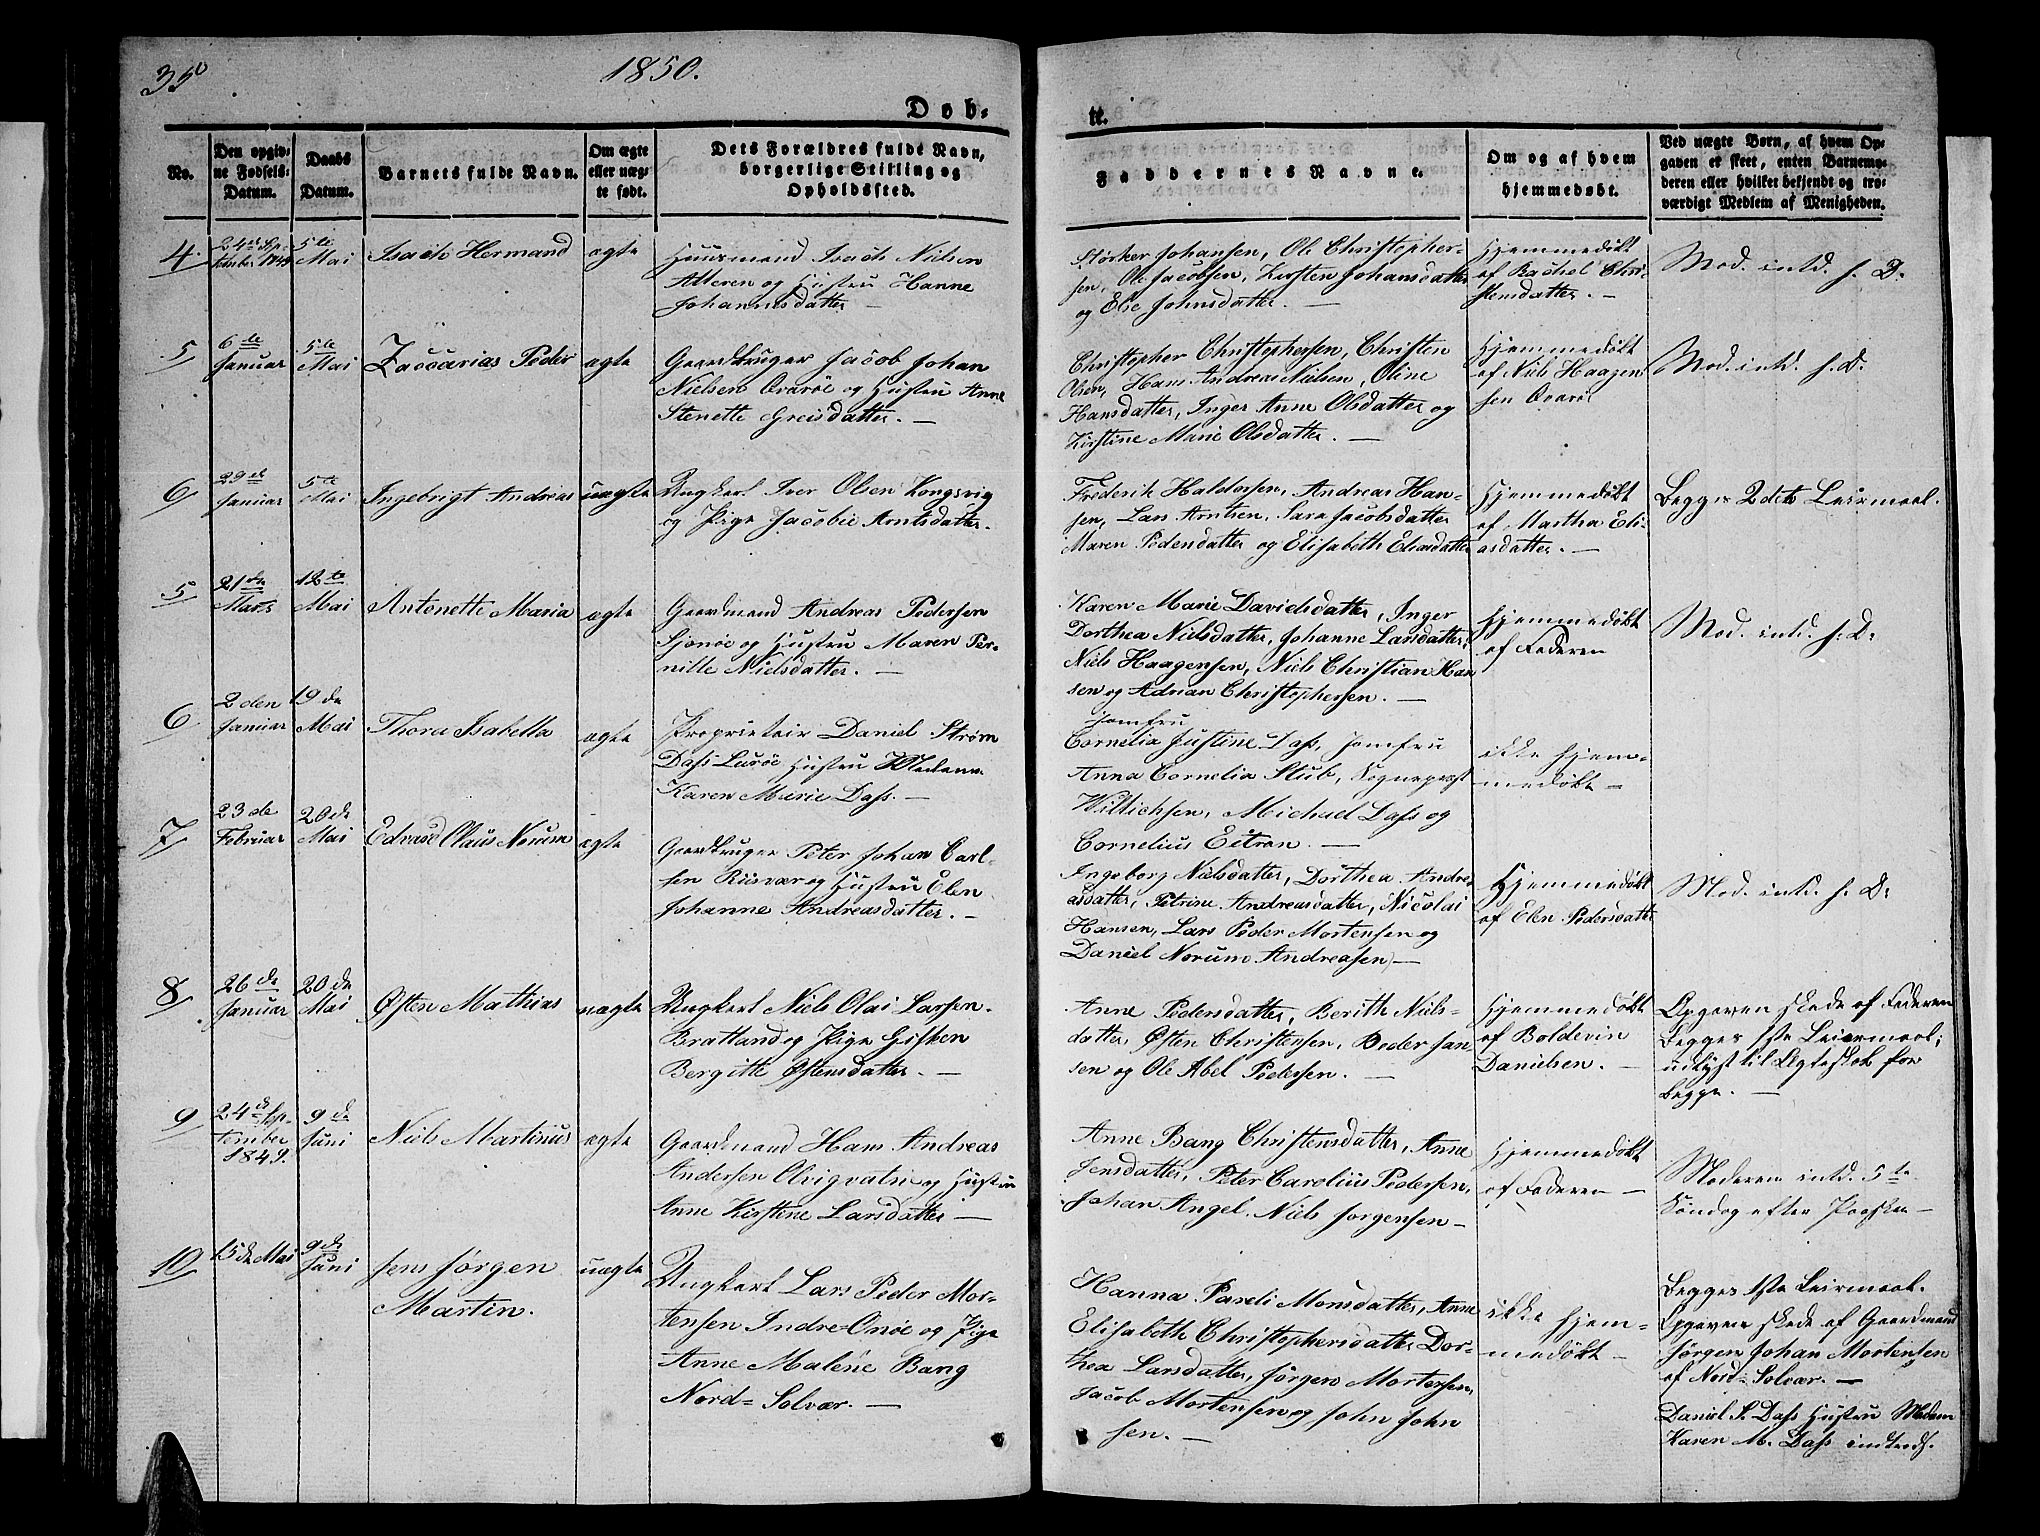 35
1850.
Døb-
te.
No.
Den opgiv-
ne Fødsels-
Datum.
Daabs
Datum.
Barnets fulde Navn.
Om ægte
eller uæg-
te født.
Dets Forældres fulde Navn,
borgerlige Stilling og
Opholdssted.
Faddernes Navne.
Om og af hvem
hjemmedøbt.
Ved uægte Børn, af hvem Op-
gaven er skeet, enten Barnemo-
deren eller hvilket bekjendt og tro-
værdigt Medlem af Menigheden.
4
24de Sep-
tember 1849
5te
Mai
Isach Hermand
ægte
Huusmand Isach Nielsen
Alteren og Hustru Hanne
Johannesdatter
Størker Johansen, Ole Christopher-
sen, Ole Jacobsen, Kirsten Johansdatter
og Else Johnsdatter. —
Hjemmedøbt
af Rachel Chri-
stensdatter. —
Mod. intd. s. D.
5
6te
Januar
5te
Mai
Zaccarias Peder
ægte
Gaardbruger Jacob Johan
Nielsen Qvarøe og Hustru Anne
Stenette Greisdatter. —
Christopher Christophersen, Christen
Olsen, Hans Andreas Nielsen, Oline
Hansdatter, Inger Anne Olsdatter og
Kirstine Marie Olsdatter. —
Hjemmedøbt
af Niels Haagen
sen Qvarø
Mod. intd. s. D.
6
29de
Januar
5te
Mai
Ingebrigt Andreas
uægte
Ungkarl Iver Olsen Kongsvig
og Pige Jacobie Arntsdatter.
Frederik Haldorsen, Andreas Han-
sen, Lars Arntsen, Sara Jacobsdatter
Maren Pedersdatter og Elisabeth Eliasdatter
Hjemmedøbt
af Martha Eli-
asdatter. —
Begges 2det Leirmaal.
5
21de
Marts
12te
Mai
Antonette Maria
ægte
Gaardmand Andreas Pedersen
Sjonøe og Hustru Maren Per-
nille Nielsdatter. —
Karen Marie Davidsdatter, Inger
Dorthea Nielsdatter, Johanne Larsdatter,
Niels Haagensen, Niels Christian Han
sen og Adrian Christophersen. —
Hjemmedøbt
af Faderen
Mod. intd. s. D.
6
2den
Januar
19de
Mai
Thora Isabella
ægte
Proprietair Daniel Strøm
Dass Lurøe Hustru Madame
Karen Marie Dass. —
Jomfru
Cornelia Justine Dass, Jomfru
Anna Cornelia Stub, Sogneprest
Willichsen, Michael Dass og
Cornelius Eitran. —
ikke hjem-
medøbt —
7
23de
Februar
20de
Mai
Edvard Olaus Norum
ægte
Gaardbruger Peter Johan Carl-
sen Riisvær og Hustru Elen
Johanne Andreasdatter. —
Ingeborg Nielsdatter, Dorthea Andre-
asdatter, Petrine Andreasdatter, Nicolai
Hansen, Lars Peder Mortensen og
Daniel Norum Andreasen —
Hjemmedøbt
af Elen Pedersdatter
Mod. intd. s. D.
8
26de
Januar
20de
Mai
Østen Mathias
uægte
Ungkarl Niels Olai Larsen
Bratland og Pige Gisken
Bergitte Østensdatter. —
Anne Pedersdatter, Berith Niels-
datter, Østen Christensen, Peder Jan
sen og Ole Abel Pedersen. —
Hjemmedøbt
af Boldevin
Danielsen. —
Opgaven skede af Faderen
Begges 1ste Leiermaal;
udlyst til Ægteskab for
begge. —
9
24de Sep-
tember
1849.
9de
Juni
Niels Martinus
ægte
Gaardmand Hans Andreas
Andersen Olvigvatn og Hustru
Anne Kirstine Larsdatter —
Anne Bang Christensdatter, Anne
Jensdatter, Peter Carolius Pedersen,
Johan Angel, Niels Jørgensen —
Hjemmedøbt
af Faderen —
Moderen intd. 5te
Søndag efter Paaske —
10
15de Mai
9de
Juni
Jens Jørgen
Martin.
uægte
Ungkarl Lars Peder Mor-
tensen Indre-Onøe og Pige
Anne Malene Bang
Nord-Solvær. —
Hanna Pareli Monsdatter, Anne
Elisabeth Christophersdatter, Dor-
thea Larsdatter, Jørgen Mortensen,
Jacob Mortensen og John John
sen. —
ikke hjem-
medøbt —
Begges 1ste Leirmaal.
Opgaven skede af Gaardmand
Jørgen Johan Mortensen
af Nord-Solvær. —
Daniel S. Dass Hustru Madam
Karen M. Dass introds.